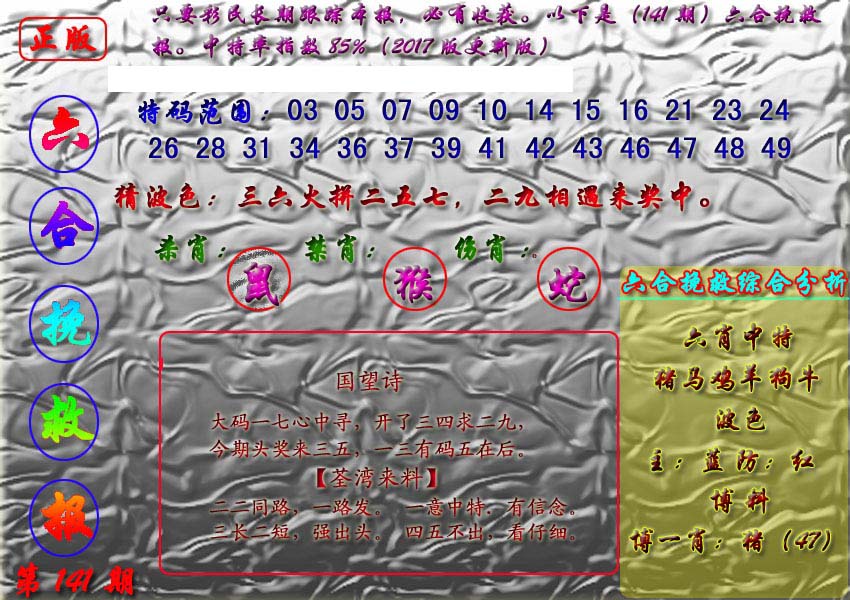 正版
只要彩民长期跟踪本报，必有收获。以下是（141期）六合挽救
报。中特率指数85%（2017版更新版）
六
合
挽
救
报
第141期
特码范围：03 05 07 09 10 14 15 16 21 23 24
26 28 31 34 36 37 39 41 42 43 46 47 48 49
猜波色：三六火拼二五七，二九相遇来奖中。
杀肖：鼠 禁肖：猴 伤肖：蛇
国望诗
大码一七心中寻，开了三四求二九，
今期头奖来三五，一三有码五在后。
【荃湾来料】
二二同路，一路发。 一意中特，有信念。
三长二短，强出头。 四五不出，看仔细。
六合挽救综合分析
六肖中特
猪马鸡羊狗牛
波色
主：蓝防：红
博料
博一肖：猪（47）